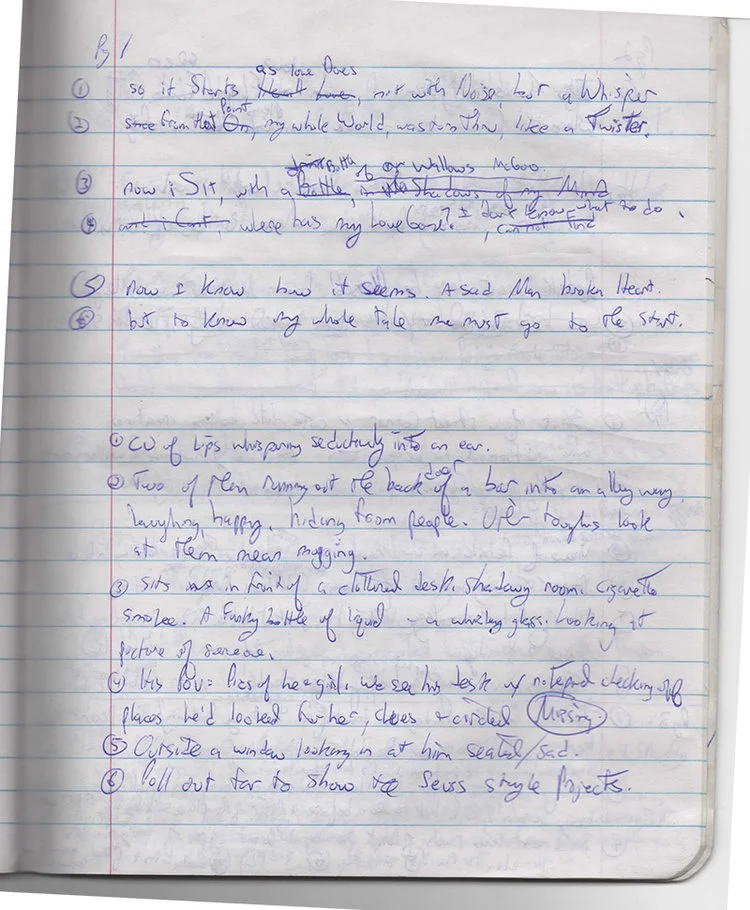 Pg 1
as love Does
① so it Starts Heart Love, not with Noise, but a Whisper
Point
② since from that On, my whole World, was torn thru, like a Twister.
drink Bottle of ol' Wallows McGoo.
③ now i Sit, with a Bottle, in the Shadows of my Mind
④ and i Cant, where has my Love Gone? I don't know what to do.
, cannot find
⑤ now I know how it seems. A sad Man broken Heart.
⑥ but to know my whole tale we must go to the start.
① CU of Lips whispering seductively into an ear.
door
② Two of them running out the back of a bar into an alley way,
laughing, happy, hiding from people. Other toughs look
at them mean mugging.
③ Sits in front of a cluttered desk. Shadowy room. Cigarette
smoke. A Funky bottle of liquid + a whiskey glass. Looking at
picture of someone.
④ His POV: Pics of her girl. we see his desk w/ notepad checking off
places he'd looked for her, clues + circled Missing.
⑤ Outside a window looking in at him seated/sad.
⑥ Pull out far to show Seuss style Projects.